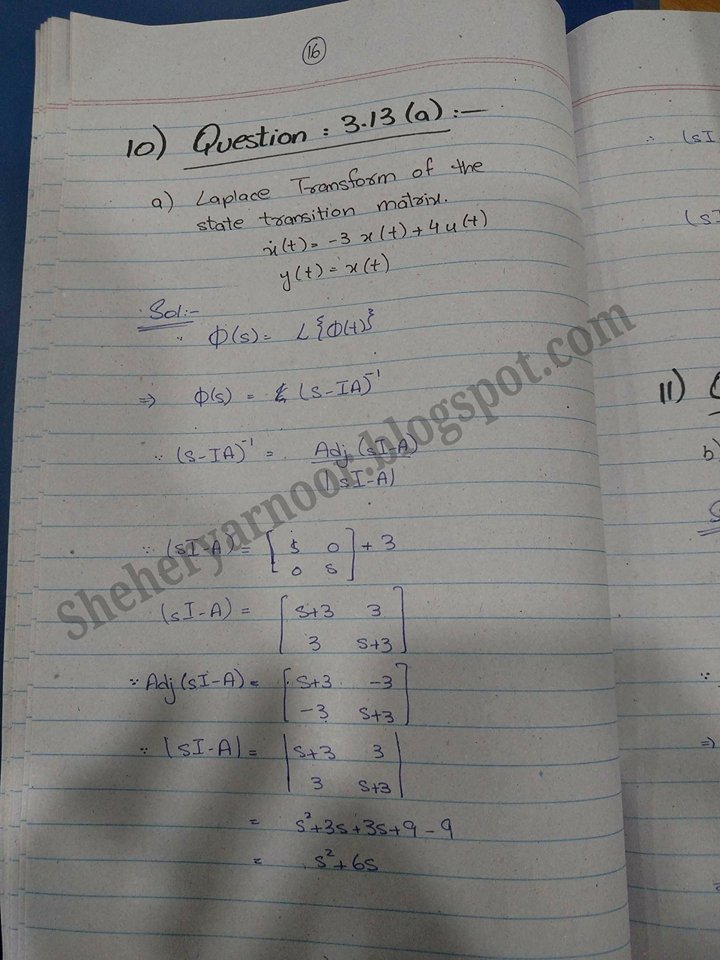 16
10) Question : 3.13 (a) :-
a) Laplace Transform of the
state transition matrix.
ẋ(t) = -3 x(t) + 4u(t)
y(t) = x(t)
Sol:-
∵ Φ(s) = L{Φ(t)}
=> Φ(s) = (S-IA)⁻¹
∵ (S-IA)⁻¹ = Adj (sI-A)
|sI-A)
∵ (sI-A) = [s 0
0 s] + 3
(sI-A) = [s+3 3
3 s+3]
∵ Adj (sI-A) = [s+3 -3
-3 s+3]
∵ |sI-A| = |s+3 3
3 s+3|
= s²+3s+3s+9-9
= s²+6s
∵ (sI
(sI
11)
b)
=>
Sheheryarnoor.blogspot.com